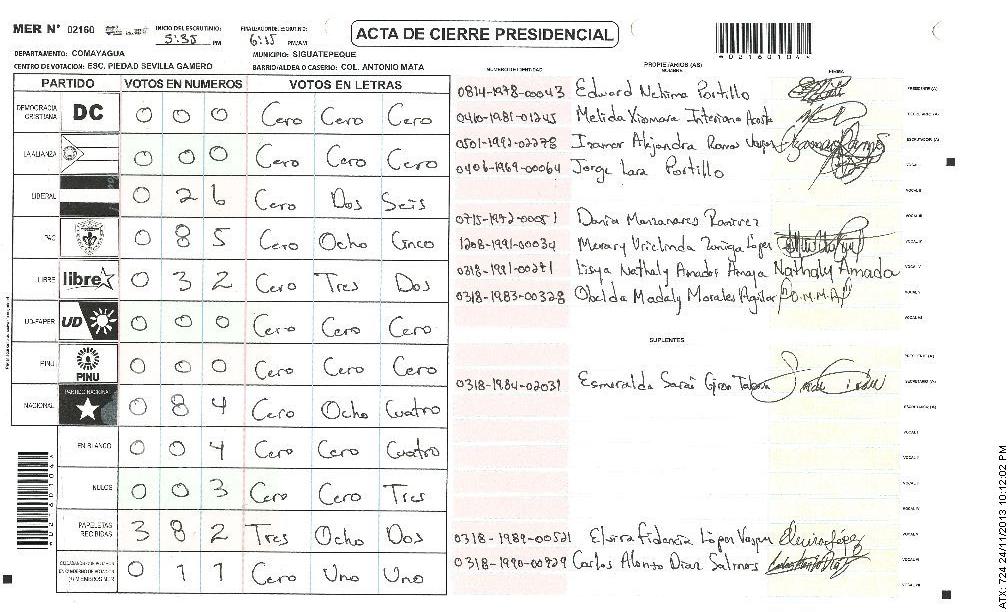 MER N° 02160
INICIO DEL ESCRUTINIO:
5:35 PM
FINALIZACION DE ESCRUTINIO:
6:15 PM/AM
ACTA DE CIERRE PRESIDENCIAL
*02160104*
DEPARTAMENTO: COMAYAGUA
MUNICIPIO: SIGUATEPEQUE
CENTRO DE VOTACION: ESC. PIEDAD SEVILLA GAMERO
BARRIO/ALDEA O CASERIO: COL. ANTONIO MATA
PARTIDO VOTOS EN NUMEROS VOTOS EN LETRAS
DEMOCRACIA CRISTIANA DC 0 0 0 Cero Cero Cero
LA ALIANZA 0 0 0 Cero Cero Cero
LIBERAL 0 2 6 Cero Dos Seis
PAC 0 8 5 Cero Ocho Cinco
LIBRE libre 0 3 2 Cero Tres Dos
UD-FAPER UD 0 0 0 Cero Cero Cero
PINU PINU 0 0 0 Cero Cero Cero
NACIONAL PARTIDO NACIONAL 0 8 4 Cero Ocho Cuatro
EN BLANCO 0 0 4 Cero Cero Cuatro
NULOS 0 0 3 Cero Cero Tres
PAPELETAS RECIBIDAS 3 8 2 Tres Ocho Dos
0 1 1 Cero Uno Uno
NUMERO DE IDENTIDAD
PROPIETARIOS (AS)
NOMBRE
FIRMA
0814-1978-00043 Edward Nehima Portillo PRESIDENTE (A)
0410-1981-01245 Melida Xiomara Interiano Acosta SECRETARIO (A)
0501-1992-02278 Izamar Alejandra Ramos Vasquez ESCRUTADOR (A)
0406-1969-00064 Jorge Lara Portillo VOCAL I
VOCAL II
0715-1972-00051 Dania Manzanares Ramirez VOCAL III
1208-1991-00034 Merary Uriclinda Zuniga Lopez VOCAL IV
0318-1991-00271 Lisya Nathaly Amador Amaya Nathaly Amador VOCAL V
0318-1983-00328 Obelda Madaly Morales Aguilar O.M.M.A VOCAL VI
VOCAL VII
SUPLENTES
PRESIDENTE (A)
0318-1984-02031 Esmeralda Sarai Giron Tabora SECRETARIO (A)
ESCRUTADOR (A)
VOCAL I
VOCAL II
VOCAL III
VOCAL IV
0318-1989-00521 Elvira Fidencia López Vasquez VOCAL V
0318-1990-00929 Carlos Alonzo Diaz Salmos VOCAL VI
VOCAL VII
*02160104*
ATX: 724 24/11/2013 10:12:02 PM